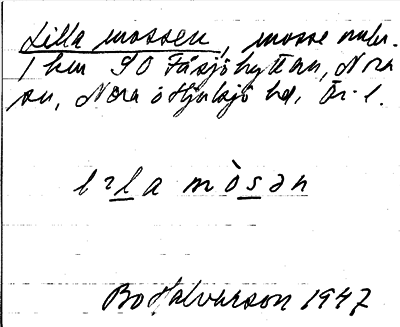 Lilla mossen, mosse omkr.
1 km SO Fåsjöhyttan, Nora
sn, Nora o Hjulsjö hd, Ör. l.
lɩla mòsən
Bo Halvarson 1947